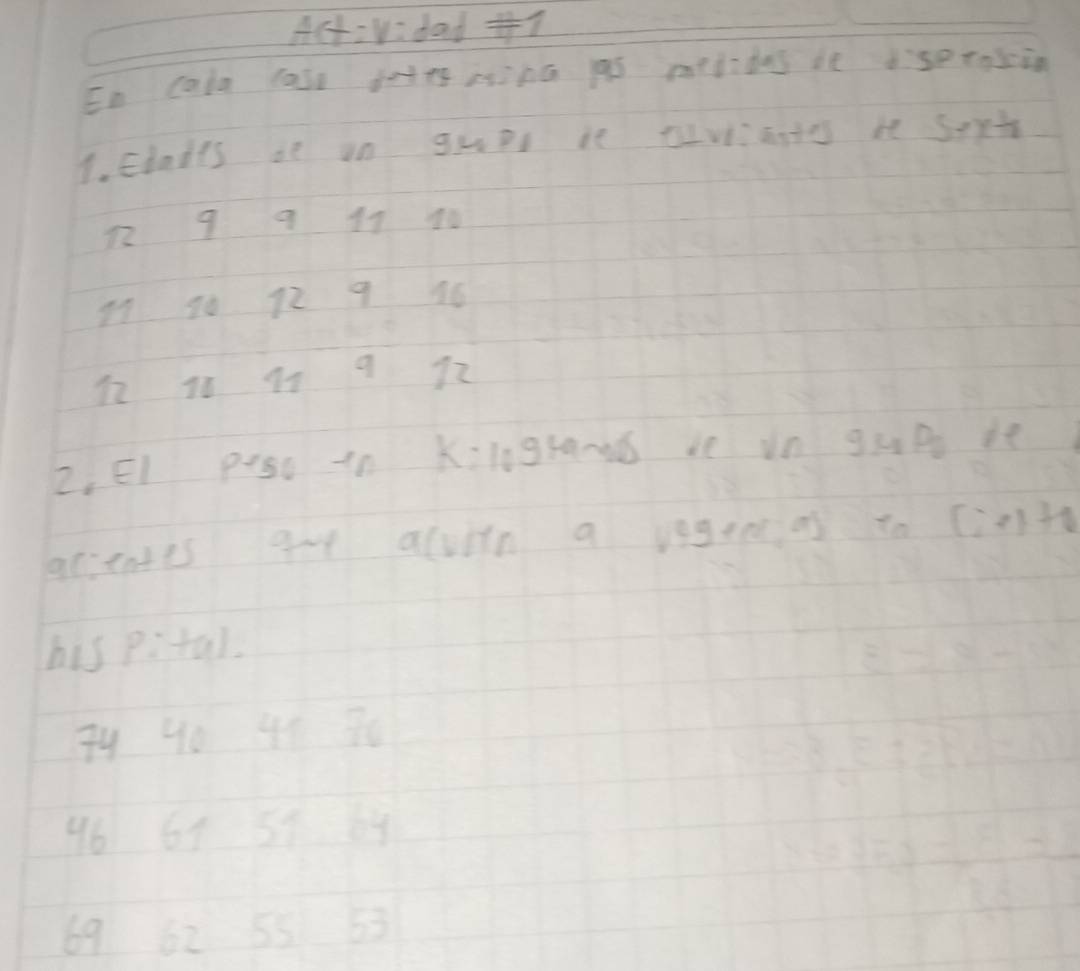 Actividad #1
En cada caso determina las medidas de dispersión
1. Edades de un grupo de estudiantes de sexto
12 9 9 11 10
11 10 12 9 10
12 10 11 9 12
2. El peso en Kilogramos de un grupo de
acientes que acuden a urgencias en cierto
hospital.
74 40 41 70
46 61 51 64
69 62 55 53